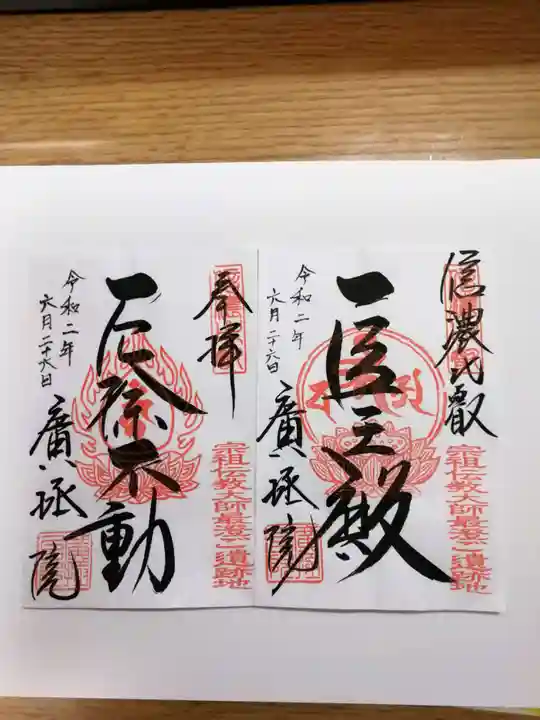 信濃比叡
宗祖伝教大師最澄ご遺跡地
医王殿
令和二年
六月二十六日
廣拯院
奉拝
宗祖伝教大師最澄ご遺跡地
厄除不動
令和二年
六月二十六日
廣拯院